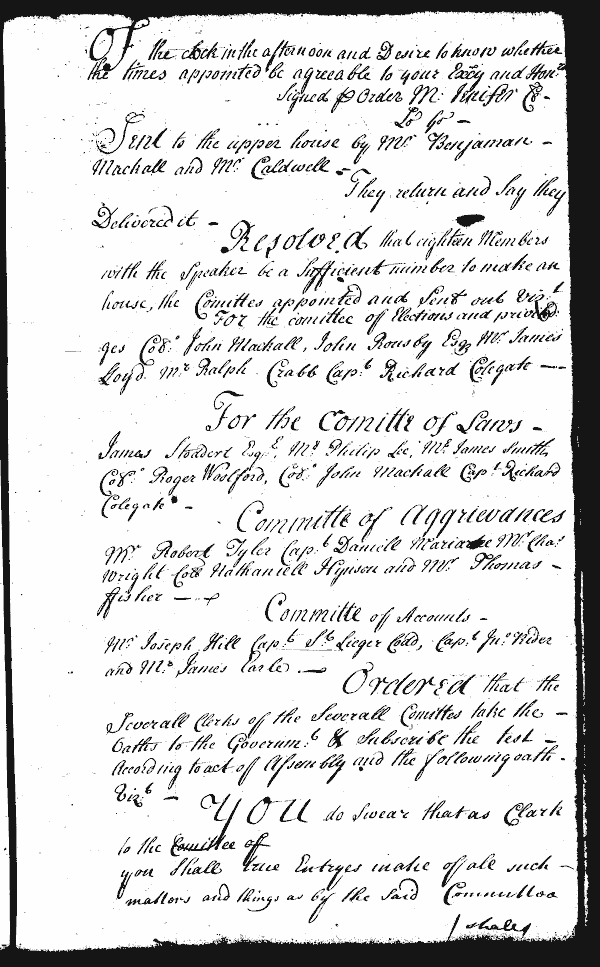 Of the clock in the afternoon and Desire to know whether
the times appointed be agreeable to your Excy and Honrs
Signed p Order M: Jenifer Cl-
Lo Ho -
Sent to the upper house by Mr Benjaman -
Mackall and Mr Caldwell -
They return and Say they
Delivered it -
Resolved that eighteen Members
with the Speaker be a Sufficient number to make an
house, the Comittes appointed and Sent out vizt
For the comitte of Elections and privile
ges Coll John Mackall, John Rousby Esq Mr James
Lloyd Mr Ralph Crabb Capt Richard Colegate -
For the Comitte of Laws -
James Stoddert Esqr, Mr Philip Lee, Mr James Smith
Coll Roger Woolford, Coll John Mackall Capt Richard
Colegate -
Committe of Aggrievances
Mr Robert Tyler Capt Daniell Mariartee Mr Cha:
Wright Coll Nathaniell Hynson and Mr Thomas -
ffisher -
Committe of Accounts -
Mr Joseph Hill Capt St Lieger Codd, Capt Jno Rider
and Mr James Earle -
Ordered that the
Severall Clerks of the Severall Comittes take the -
Oaths to the Governmt & Subscribe the test -
According to act of Assembly and the following oath -
Vizt -
You do Swear that as Clark
to the Comittee of
you Shall true Entryes make of all such -
matters and things as by the said Committee
shall